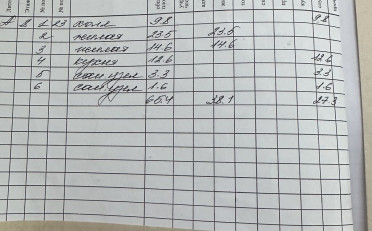 А В 1 23 холл 9.8 9.8
2 жилая 23.5 23.5
3 жилая 14.6 14.6
4 кухня 12.6 12.6
5 сан узел 3.3 3.3
6 сан узел 1.6 1.6
65.4 38.1 27.3